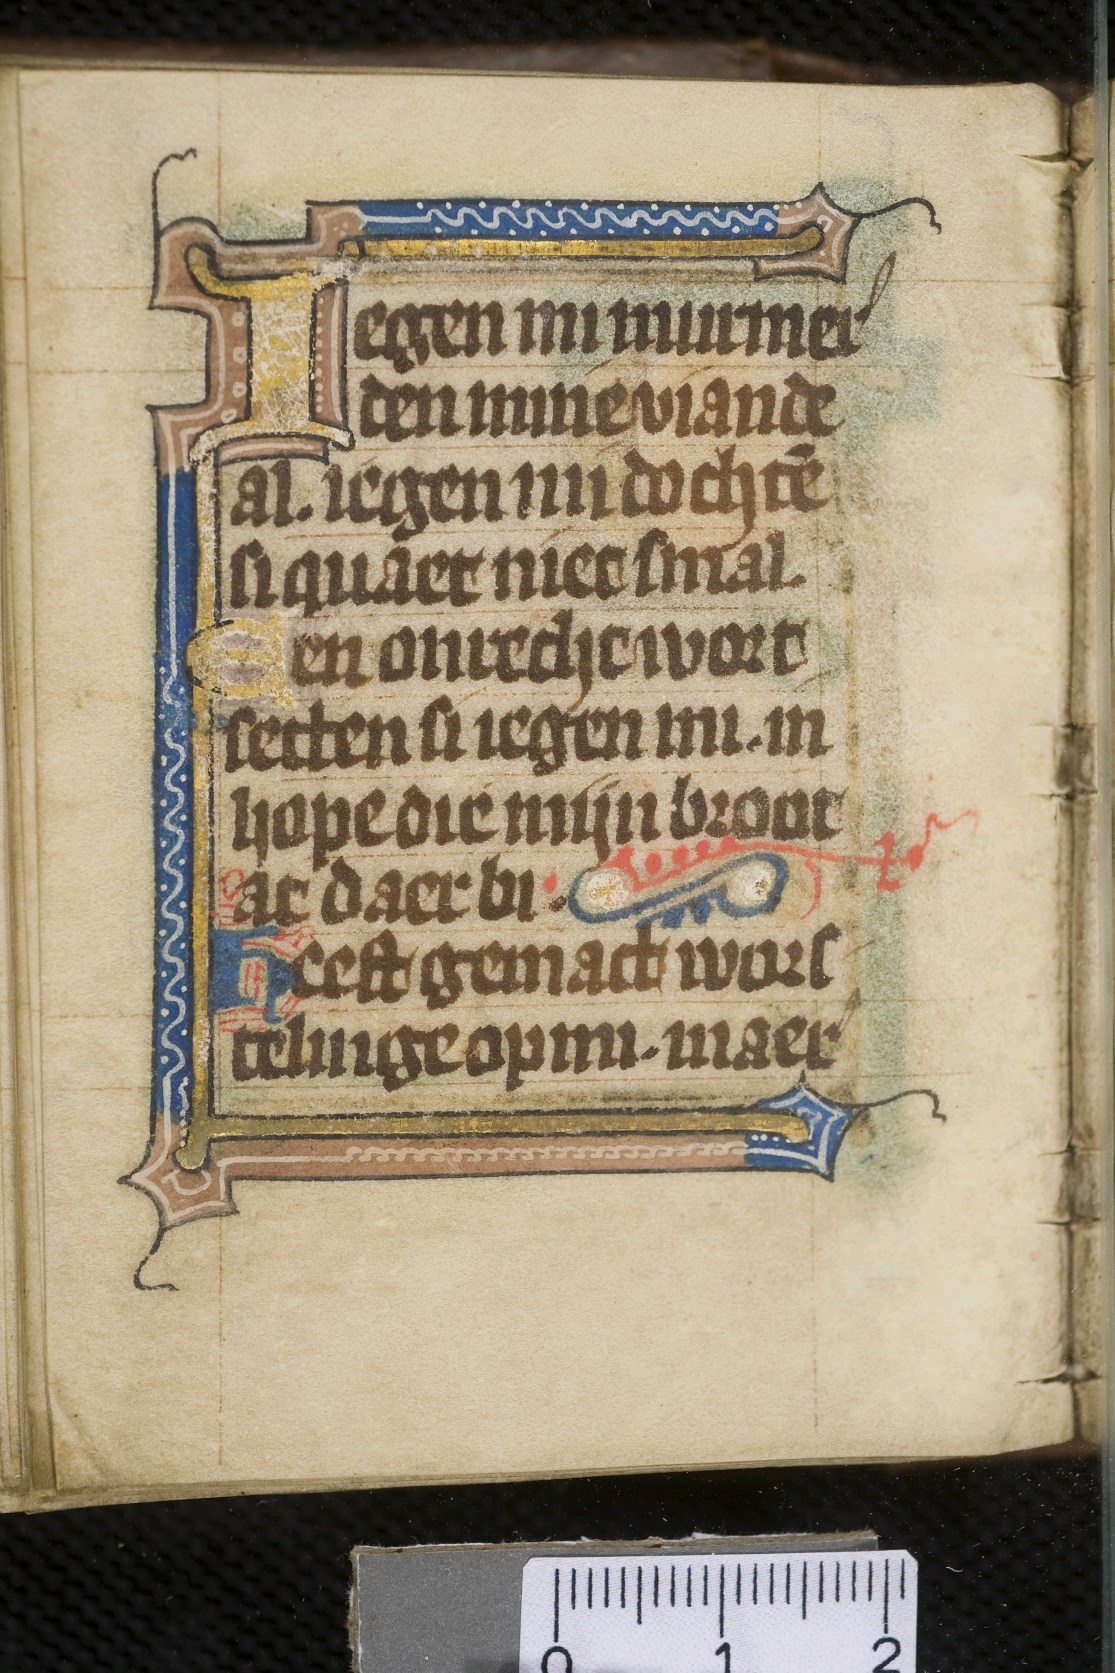 Iegen mi murmer
den mine viande
al. iegen mi dochtē
si quaet niet smal.
Een onrecht wort
setten si iegen mi. in
hope die mijn broot
at daer bi.
Heeft gemact wors
telinge op mi. maer
0 1 2